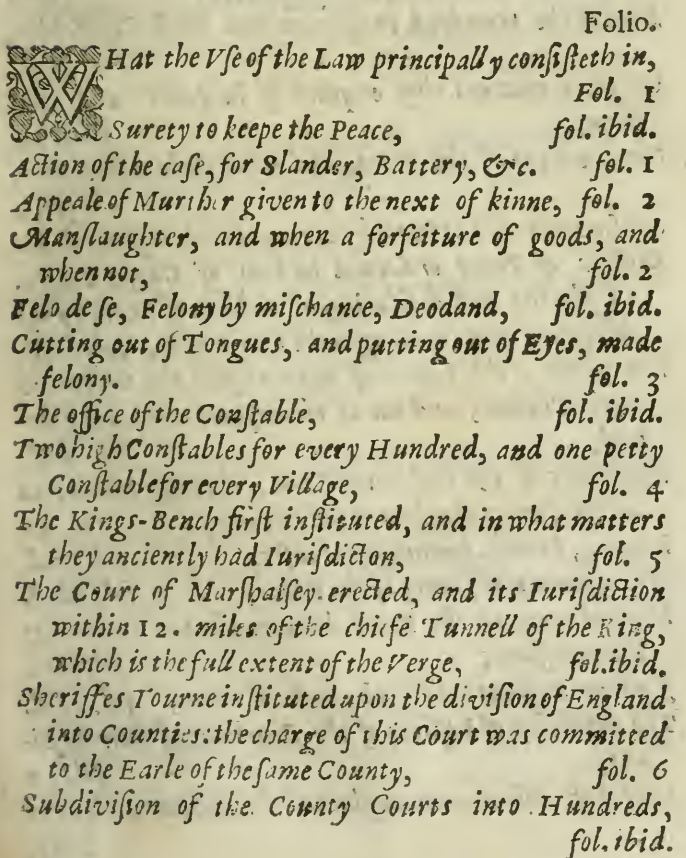 Folio.
WHat the Vſe of the Law principally conſiſteth in,
Fol. 1
Surety to keepe the Peace, fol. ibid.
Action of the caſe, for Slander, Battery, &c. fol. 1
Appeale of Murther given to the next of kinne, fol. 2
Manſlaughter, and when a forfeiture of goods, and
when not, fol. 2
Felo de ſe, Felony by miſchance, Deodand, fol. ibid.
Cutting out of Tongues, and putting out of Eyes, made
felony. fol. 3
The office of the Conſtable, fol. ibid.
Two high Conſtables for every Hundred, and one petty
Conſtable for every Village, fol. 4
The Kings-Bench firſt inſtituted, and in what matters
they anciently had Iuriſdiction, fol. 5
The Court of Marſhalſey erected, and its Iuriſdiction
within 12. miles of the chiefe Tunnell of the King,
which is the full extent of the Verge, fol. ibid.
Sheriffes Tourne inſtituted upon the diviſion of England
into Counties: the charge of this Court was committed
to the Earle of the ſame County, fol. 6
Subdiviſion of the County Courts into Hundreds,
fol. ibid.